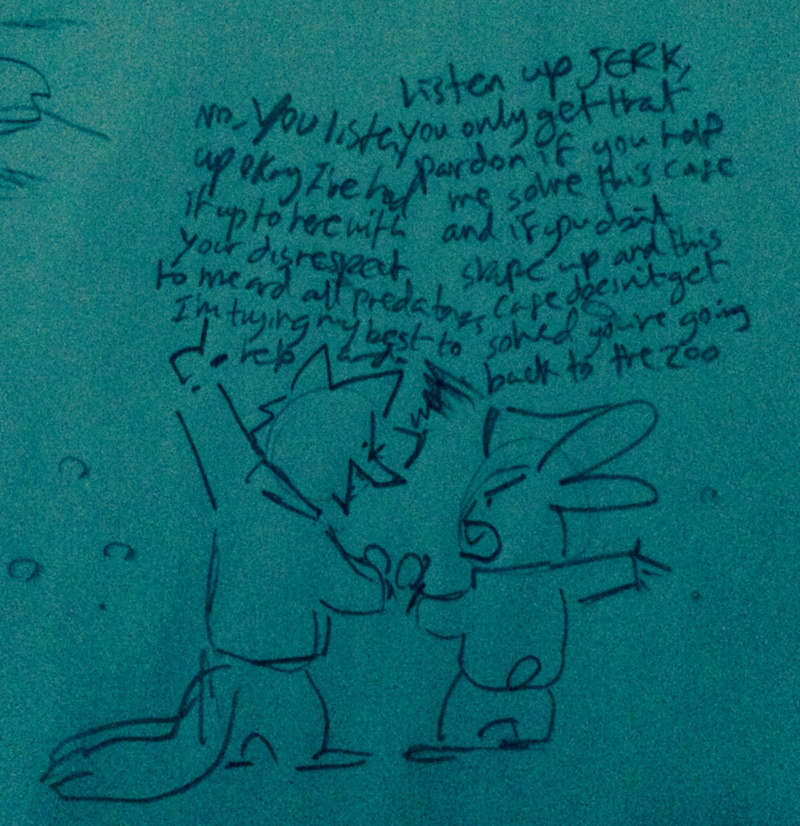 Listen up JERK,
you only get that
pardon if you help
me solve this case
and if you don't
shape up and this
case doesn't get
solved you're going
back to the zoo
No, You listen
up okay I've had
it up to here with
your disrespect
to me and all predators
I'm trying my best to
help and